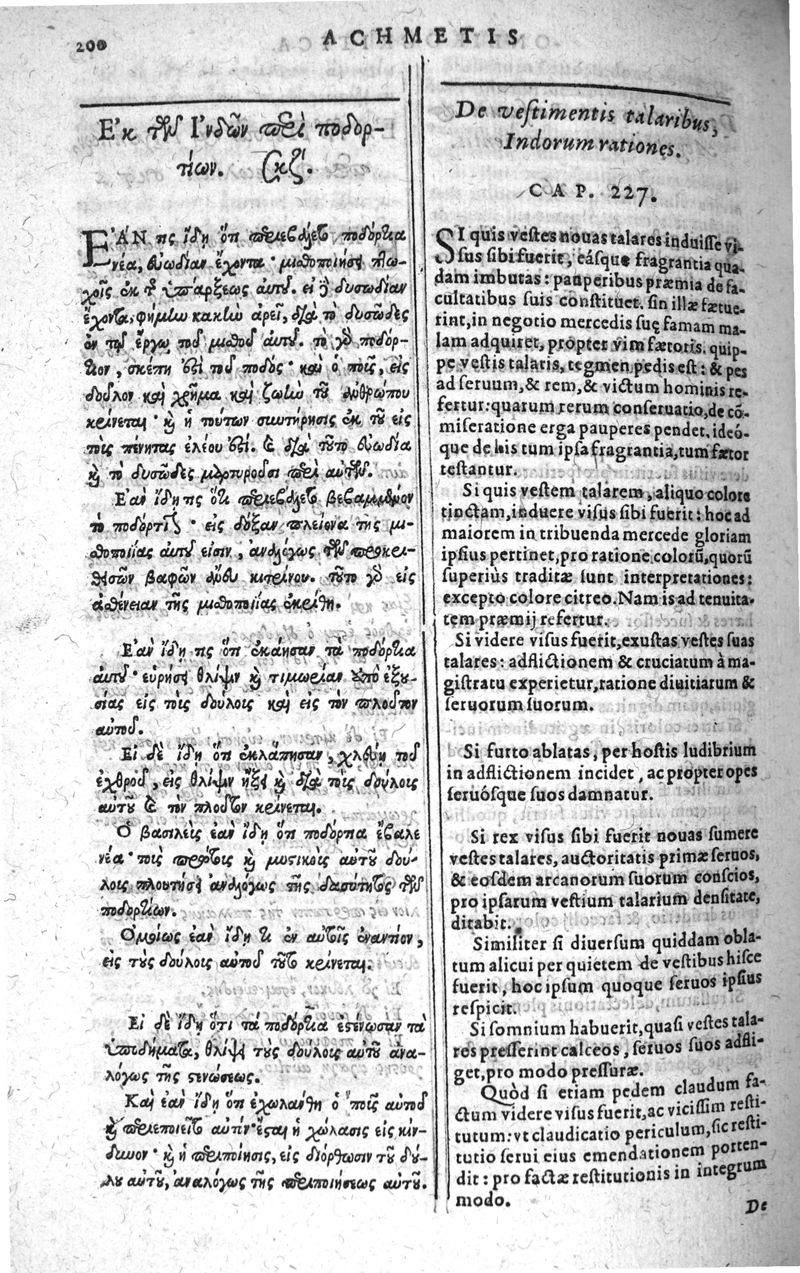 200 ACHMETIS
Ἐκ τῶν Ἰνδῶν περὶ ποδορ-
τίων. σκζʹ.
ἘΑΝ τις ἴδῃ ὅτι περιεβάλετο ποδόρτια
νέα, εὐωδίαν ἔχοντα· μισθοποιήσει πτω-
χοῖς ἐκ τῆς ὑπάρξεως αὐτοῦ. εἰ δὲ δυσωδίαν
ἔχοντα, φήμην κακὴν ἀρεῖ, διὰ τὸ δυσῶδες
ἐν τῷ ἔργῳ τοῦ μισθοῦ αὐτοῦ. τὸ γὰρ ποδόρ-
τιον, σκέπη ἐστὶ τοῦ ποδός· καὶ ὁ ποῦς, εἰς
δοῦλον καὶ χρῆμα καὶ ζωὴν τοῦ ἀνθρώπου
κρίνεται· καὶ ἡ τούτων συντήρησις ἐκ τοῦ εἰς
τοὺς πένητας ἐλέου ἐστί. καὶ διὰ τοῦτο εὐωδία
καὶ τὸ δυσῶδες μαρτυροῦσι περὶ αὐτῶν.
Ἐὰν ἴδῃ τις ὅτι περιεβάλετο βεβαμμένον
τὸ ποδόρτιον· εἰς δόξαν πλείονα τῆς μι-
σθοποιίας αὐτοῦ εἰσιν, ἀναλόγως τῶν προκρι-
θεισῶν βαφῶν ἄνευ κιτρίνου. τοῦτο γὰρ εἰς
ἀσθένειαν τῆς μισθοποιίας ἐκρίθη.
Ἐὰν ἴδῃ τις ὅτι ἐκάησαν τὰ ποδόρτια
αὐτοῦ· εὑρήσει θλίψιν καὶ τιμωρίαν ὑπὸ ἐξου-
σίας εἰς τοὺς δούλους καὶ εἰς τὸν πλοῦτον
αὐτοῦ.
Εἰ δὲ ἴδῃ ὅτι ἐκλάπησαν, χλεύῃ τοῦ
ἐχθροῦ, εἰς θλίψιν ἥξει καὶ διὰ τοὺς δούλους
αὐτοῦ καὶ τὸν πλοῦτον κρίνεται.
Ὁ βασιλεὺς ἐὰν ἴδῃ ὅτι ποδόρτια ἔβαλε
νέα· τοὺς πρώτους καὶ μυστικοὺς αὐτοῦ δού-
λους πλουτήσει ἀναλόγως τῆς δασύτητος τῶν
ποδορτίων.
Ὁμοίως ἐὰν ἴδῃ τι ἐν αὐτοῖς ἐναντίον,
εἰς τοὺς δούλους αὐτοῦ τοῦτο κρίνεται.
Εἰ δὲ ἴδῃ ὅτι τὰ ποδόρτια ἐστένωσαν τὰ
ὑποδήματα, θλίψει τοὺς δούλους αὐτοῦ ἀνα-
λόγως τῆς στενώσεως.
Καὶ ἐὰν ἴδῃ ὅτι ἐχωλάνθη ὁ ποῦς αὐτοῦ
καὶ περιεποιεῖτο αὐτὸν· ἔσται ἡ χώλασις εἰς κίν-
δυνον· καὶ ἡ περιποίησις, εἰς διόρθωσιν τοῦ δού-
λου αὐτοῦ, ἀναλόγως τῆς περιποιήσεως αὐτοῦ.
De vestimentis talaribus,
Indorum rationes.
CAP. 227.
SI quis vestes nouas talares induisse vi-
sus sibi fuerit, eásque fragrantia qua-
dam imbutas: pauperibus præmia de fa-
cultatibus suis constituet. sin illæ fœtue-
rint, in negotio mercedis suę famam ma-
lam adquiret, propter vim fœtoris. quip-
pe vestis talaris, tegmen pedis est: & pes
ad seruum, & rem, & victum hominis re-
fertur: quarum rerum conseruatio, de cō-
miseratione erga pauperes pendet. ideó-
que de his tum ipsa fragrantia, tum fœtor
testantur.
Si quis vestem talarem, aliquo colore
tinctam, induere visus sibi fuerit: hoc ad
maiorem in tribuenda mercede gloriam
ipsius pertinet, pro ratione colorũ, quorũ
superius traditæ sunt interpretationes:
excepto colore citreo. Nam is ad tenuita-
tem præmij refertur.
Si videre visus fuerit, exustas vestes suas
talares: adflictionem & cruciatum à ma-
gistratu experietur, ratione diuitiarum &
seruorum suorum.
Si furto ablatas, per hostis ludibrium
in adflictionem incidet, ac propter opes
seruósque suos damnatur.
Si rex visus sibi fuerit nouas sumere
vestes talares, auctoritatis primæ seruos,
& eosdem arcanorum suorum conscios,
pro ipsarum vestium talarium densitate,
ditabit.
Similiter si diuersum quiddam obla-
tum alicui per quietem de vestibus hisce
fuerit, hoc ipsum quoque seruos ipsius
respicit.
Si somnium habuerit, quasi vestes tala-
res presserint calceos, seruos suos adfli-
get, pro modo pressuræ.
Quòd si etiam pedem claudum fa-
ctum videre visus fuerit, ac vicissim resti-
tutum: vt claudicatio periculum, sic resti-
tutio serui eius emendationem porten-
dit: pro factæ restitutionis in integrum
modo.
De